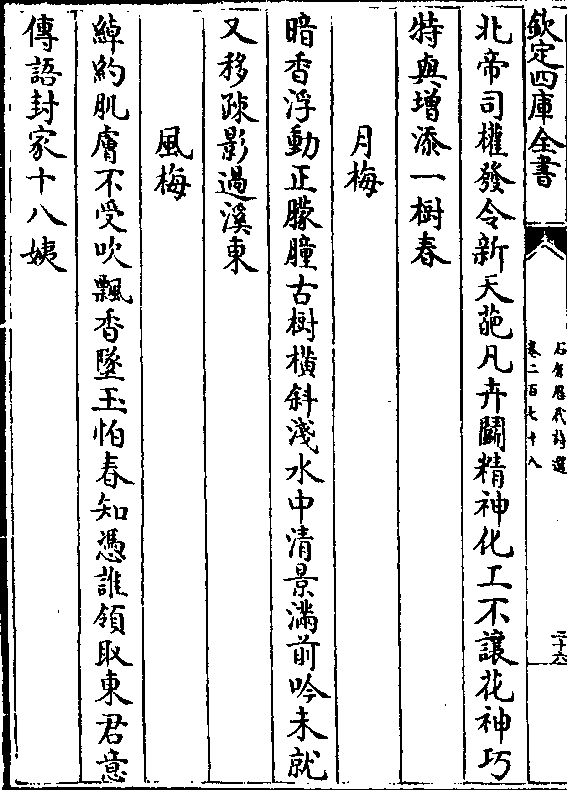 欽定四庫全書
石倉歷代詩選
卷二百七十八
三十六
北帝司權發令新天葩凡卉鬭精神化工不讓花神巧
特與增添一樹春
月梅
暗香浮動正朦朣古樹橫斜淺水中清景滿前吟未就
又移踈影過溪東
風梅
綽約肌膚不受吹飄香墜玉怕春知憑誰領取東君意
傳語封家十八姨